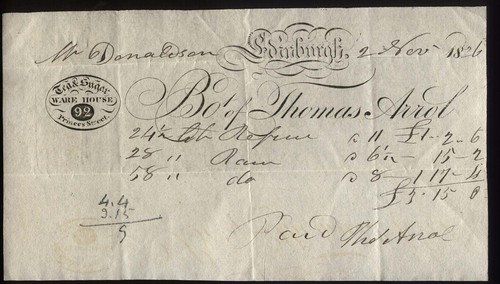 Mr Donaldson Edinburgh, 2 Novr 1826
Tea & Sugar
WARE HOUSE
92
Princes Street.
Bot. of Thomas Arrol
24½ lib Refine @ 11 £1 - 2 - 6
28 " Raw @ 6½ - 15 - 2
58 " do @ 8 1 17 - 4
£3 . 15 0
4.4
3.15
9
Paid Thos Arrol